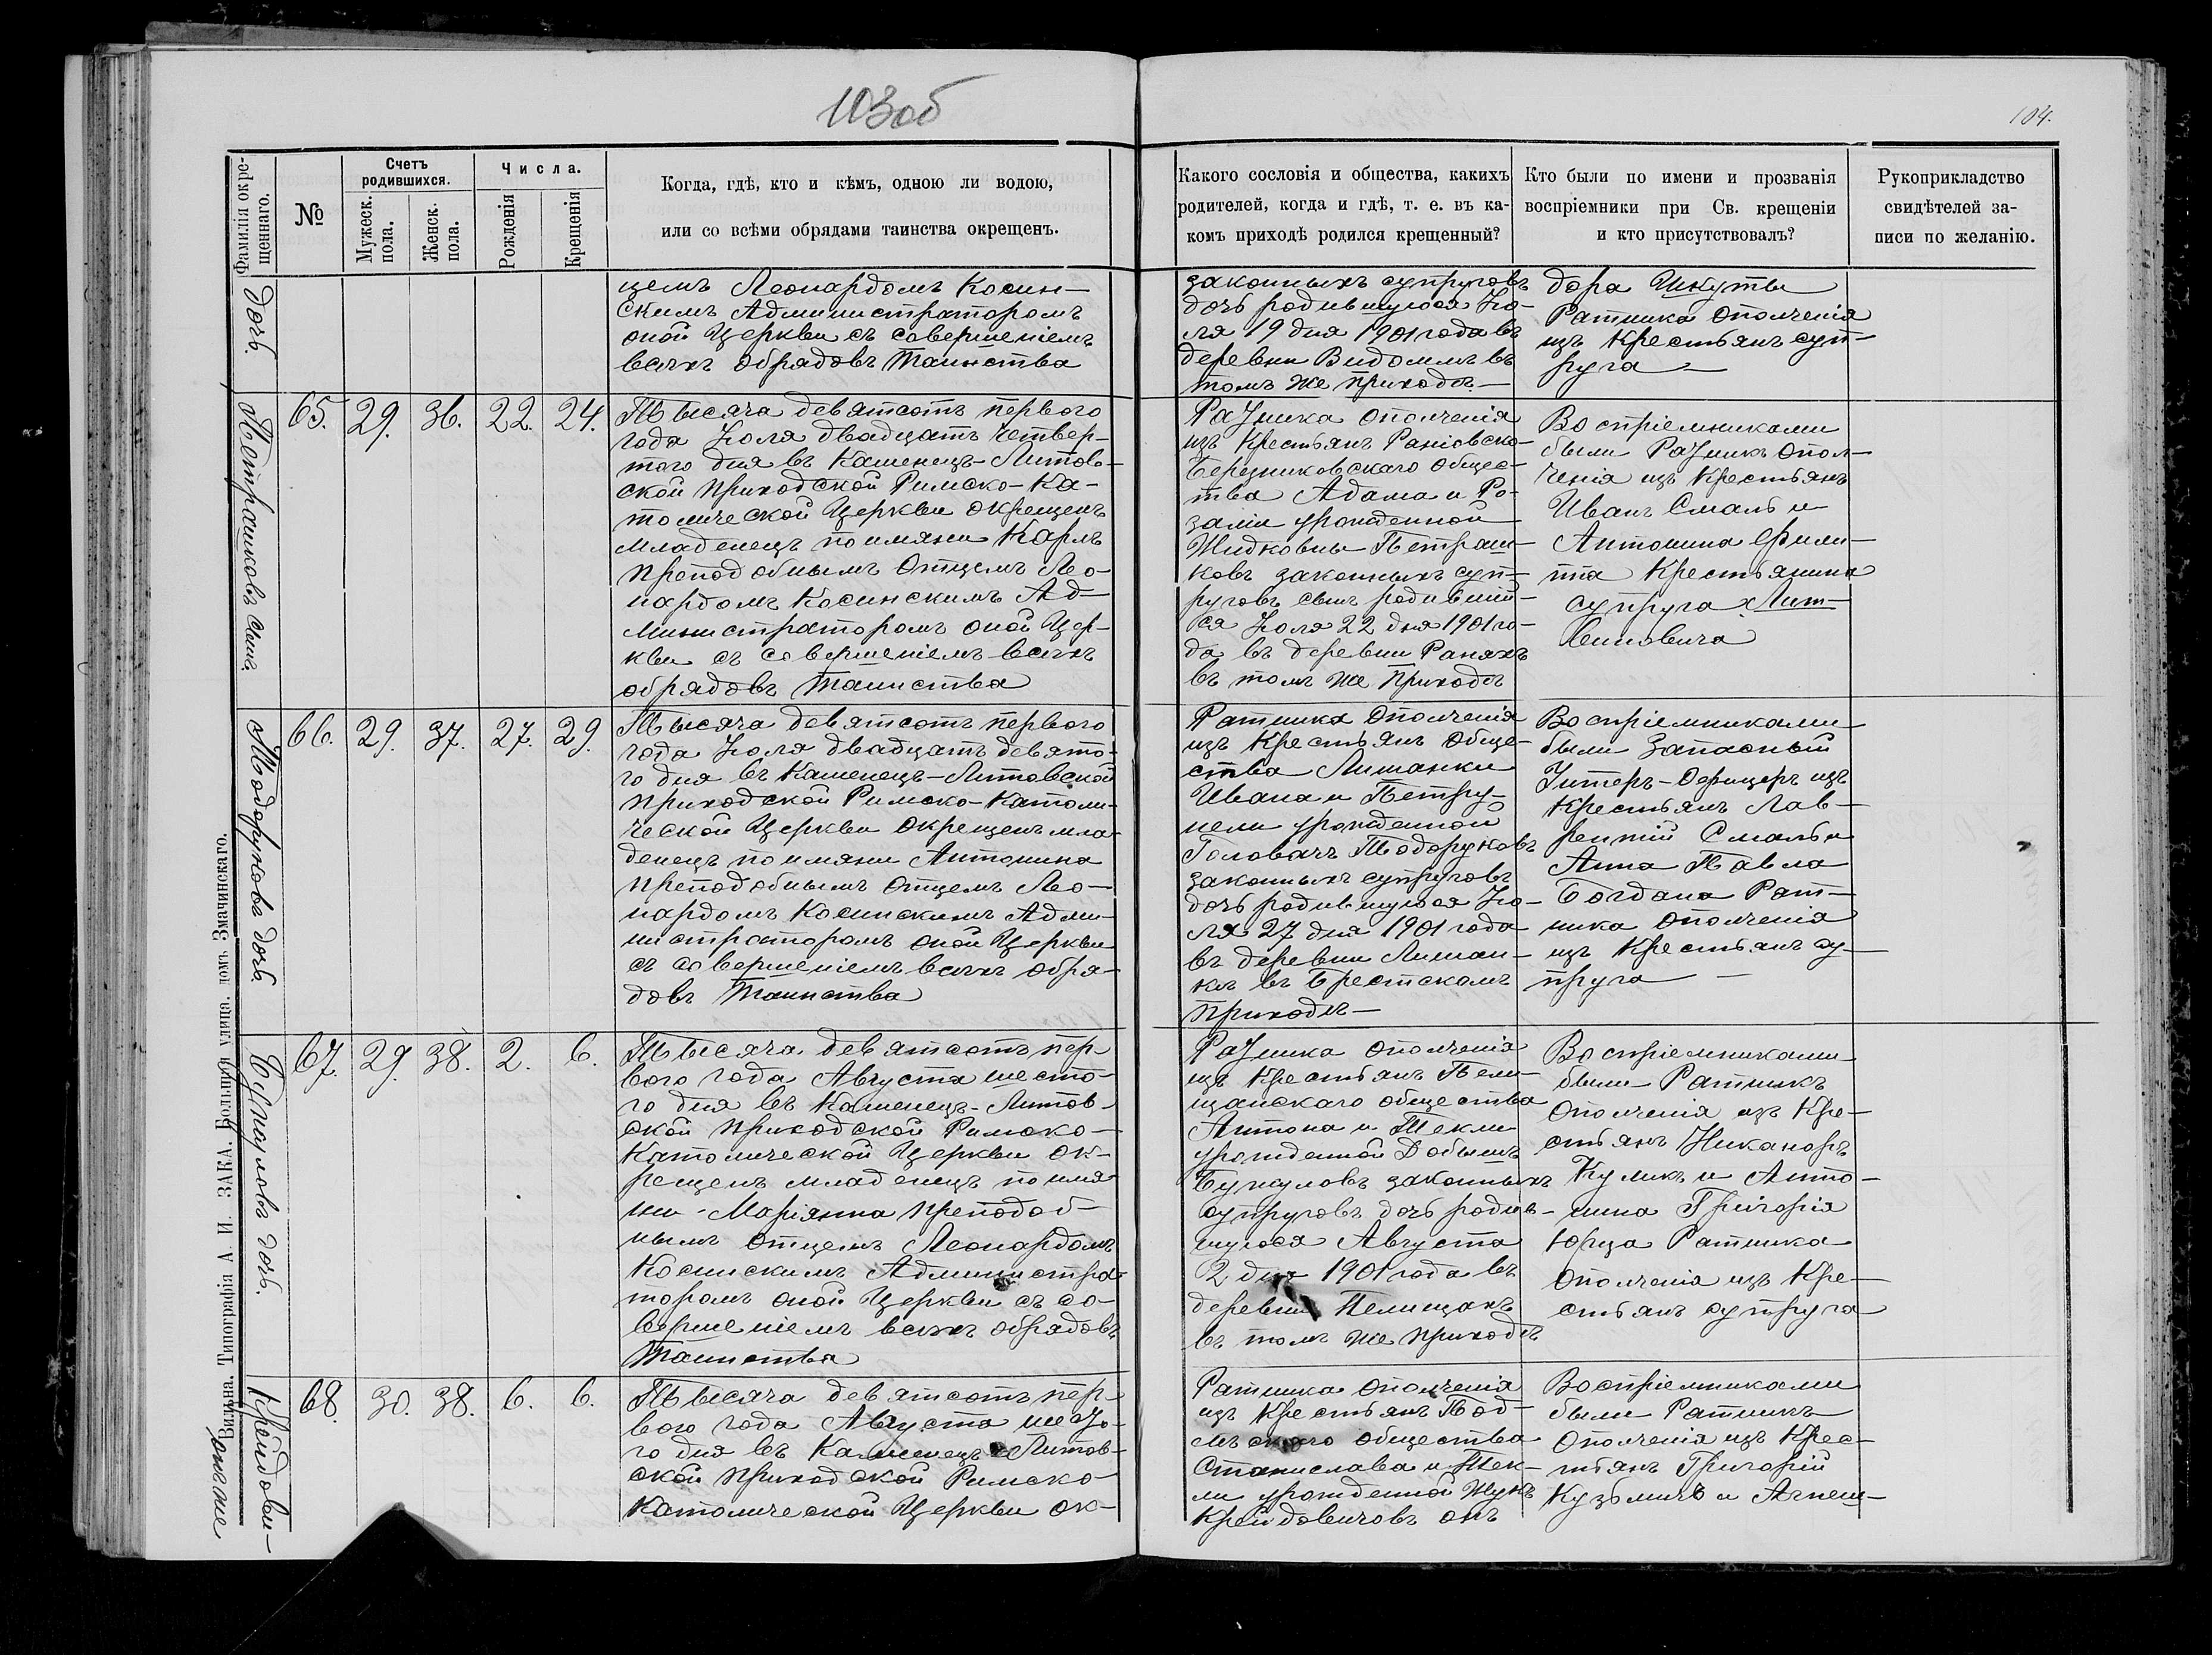 103об
104.
Фамилія окре-
щеннаго.
№
Счетъ
родившихся.
Мужеск.
пола.
Женск.
пола.
Числа.
Рожденія
Крещенія
Когда, гдѣ, кто и кѣмъ, одною ли водою,
или со всѣми обрядами таинства окрещенъ.
Какого сословія и общества, какихъ
родителей, когда и гдѣ, т. е. въ ка-
комъ приходѣ родился крещенный?
Кто были по имени и прозванія
воспріемники при Св. крещеніи
и кто присутствовалъ?
Рукоприкладство
свидѣтелей за-
писи по желанію.
дочь.
цемъ Леонардомъ Косин-
скимъ Администраторомъ
оной Церкви съ совершеніемъ
всѣхъ обрядовъ Таинства
законныхъ супруговъ
дочь родившуюся Ію-
ля 19 дня 1901 года въ
деревни Видомлѣ въ
томъ же приходѣ—
дора Шкуты
Ратника Ополченія
изъ Крестьянъ суп-
руга —
Петрашковъ сынъ.
65. 29. 36. 22. 24.
Тысяча девятсотъ перваго
года Іюля двадцать четвер-
того дня въ Каменецъ-Литов-
ской приходской Римско-Ка-
толической Церкви окрещенъ
младенецъ по имяни Карлъ
преподобнымъ Отцемъ Лео-
нардомъ Косинскимъ Ад-
министраторомъ оной Цер-
кви съ совершеніемъ всѣхъ
обрядовъ Таинства
Ратника ополченія
изъ Крестьянъ Раніовско-
Березниковскаго общес-
тва Адама и Ро-
заліи урожденной
Жидковны Петраш-
ковъ законныхъ суп-
руговъ сынъ родивший-
ся Іюля 22 дня 1901 го-
да въ деревни Раняхъ
въ томъ же приходѣ
Воспріемниками
были Ратникъ Опол-
ченія изъ Крестьянъ
Иванъ Смаль и
Антонина Фили-
ппа Крестьянина
супруга Лит-
виновича
Тодоруковъ дочь.
66. 29. 37. 27. 29.
Тысяча девятсотъ перваго
года Іюля двадцать девято-
го дня въ Каменецъ-Литовской
приходской Римско-Католи-
ческой Церкви окрещенъ мла-
денецъ по имяни Антонина
преподобнымъ отцемъ Лео-
нардомъ Косинскимъ Адми-
нистраторомъ оной Церкви
съ совершеніемъ всѣхъ обря-
довъ Таинства
Ратника Ополченія
изъ Крестьянъ обще-
ства Лишанки
Ивана и Петру-
нели урожденной
Головачъ Тодоруковъ
законныхъ супруговъ
дочь родившуюся Ію-
ля 27 дня 1901 года
въ деревни Лишан-
кѣ въ Брестскомъ
приходѣ—
Воспріемниками
были Запасный
Унтеръ-Офицеръ изъ
Крестьянъ Лав-
рентій Смаль и
Анна Павла
Богдана Рат-
ника ополченія
изъ Крестьянъ су-
пруга —
дочь.
67. 29. 38. 2. 6.
Тысяча девятсотъ пер-
вого года Августа шесто-
го дня въ Каменецъ-Литов-
ской приходской Римско-
Католической Церкви ок-
рещенъ младенецъ по имя-
ни Маріянна преподоб-
нымъ отцемъ Леонардомъ
Косинскимъ Администра-
торомъ оной Церкви съ со-
вершеніемъ всѣхъ обрядовъ
Таинства
Ратника ополченія
изъ Крестьянъ Пели-
щанскаго общества
Антона и Текли
урожденной Добышъ
законныхъ
супруговъ дочь родив-
шуюся Августа
2 дня 1901 года въ
деревни Пелищахъ
въ томъ же приходѣ
Воспріемниками
были Ратникъ
Ополченія изъ Кре-
стьянъ Никаноръ
Куликъ и Анто-
нина Григорія
Юрца Ратника
ополченія изъ Кре-
стьянъ супруга
Крейдови-
68. 30. 38. 6. 6.
Тысяча девятсотъ пер-
вого года Августа шесто-
го дня въ Каменецъ-Литов-
ской приходской Римско-
Католической Церкви ок-
Ратника ополченія
изъ Крестьянъ Под-
общества
Станислава и Тек-
ли урожденной Жукъ
Крейдовичовъ
Воспріемниками
были Ратникъ
Ополченія изъ Крес-
тьянъ Григорій
Кузьмичъ и Агнеш-
Вильна. Типографія А. И. ЗАКА, Большая улица, домъ Змачинскаго.